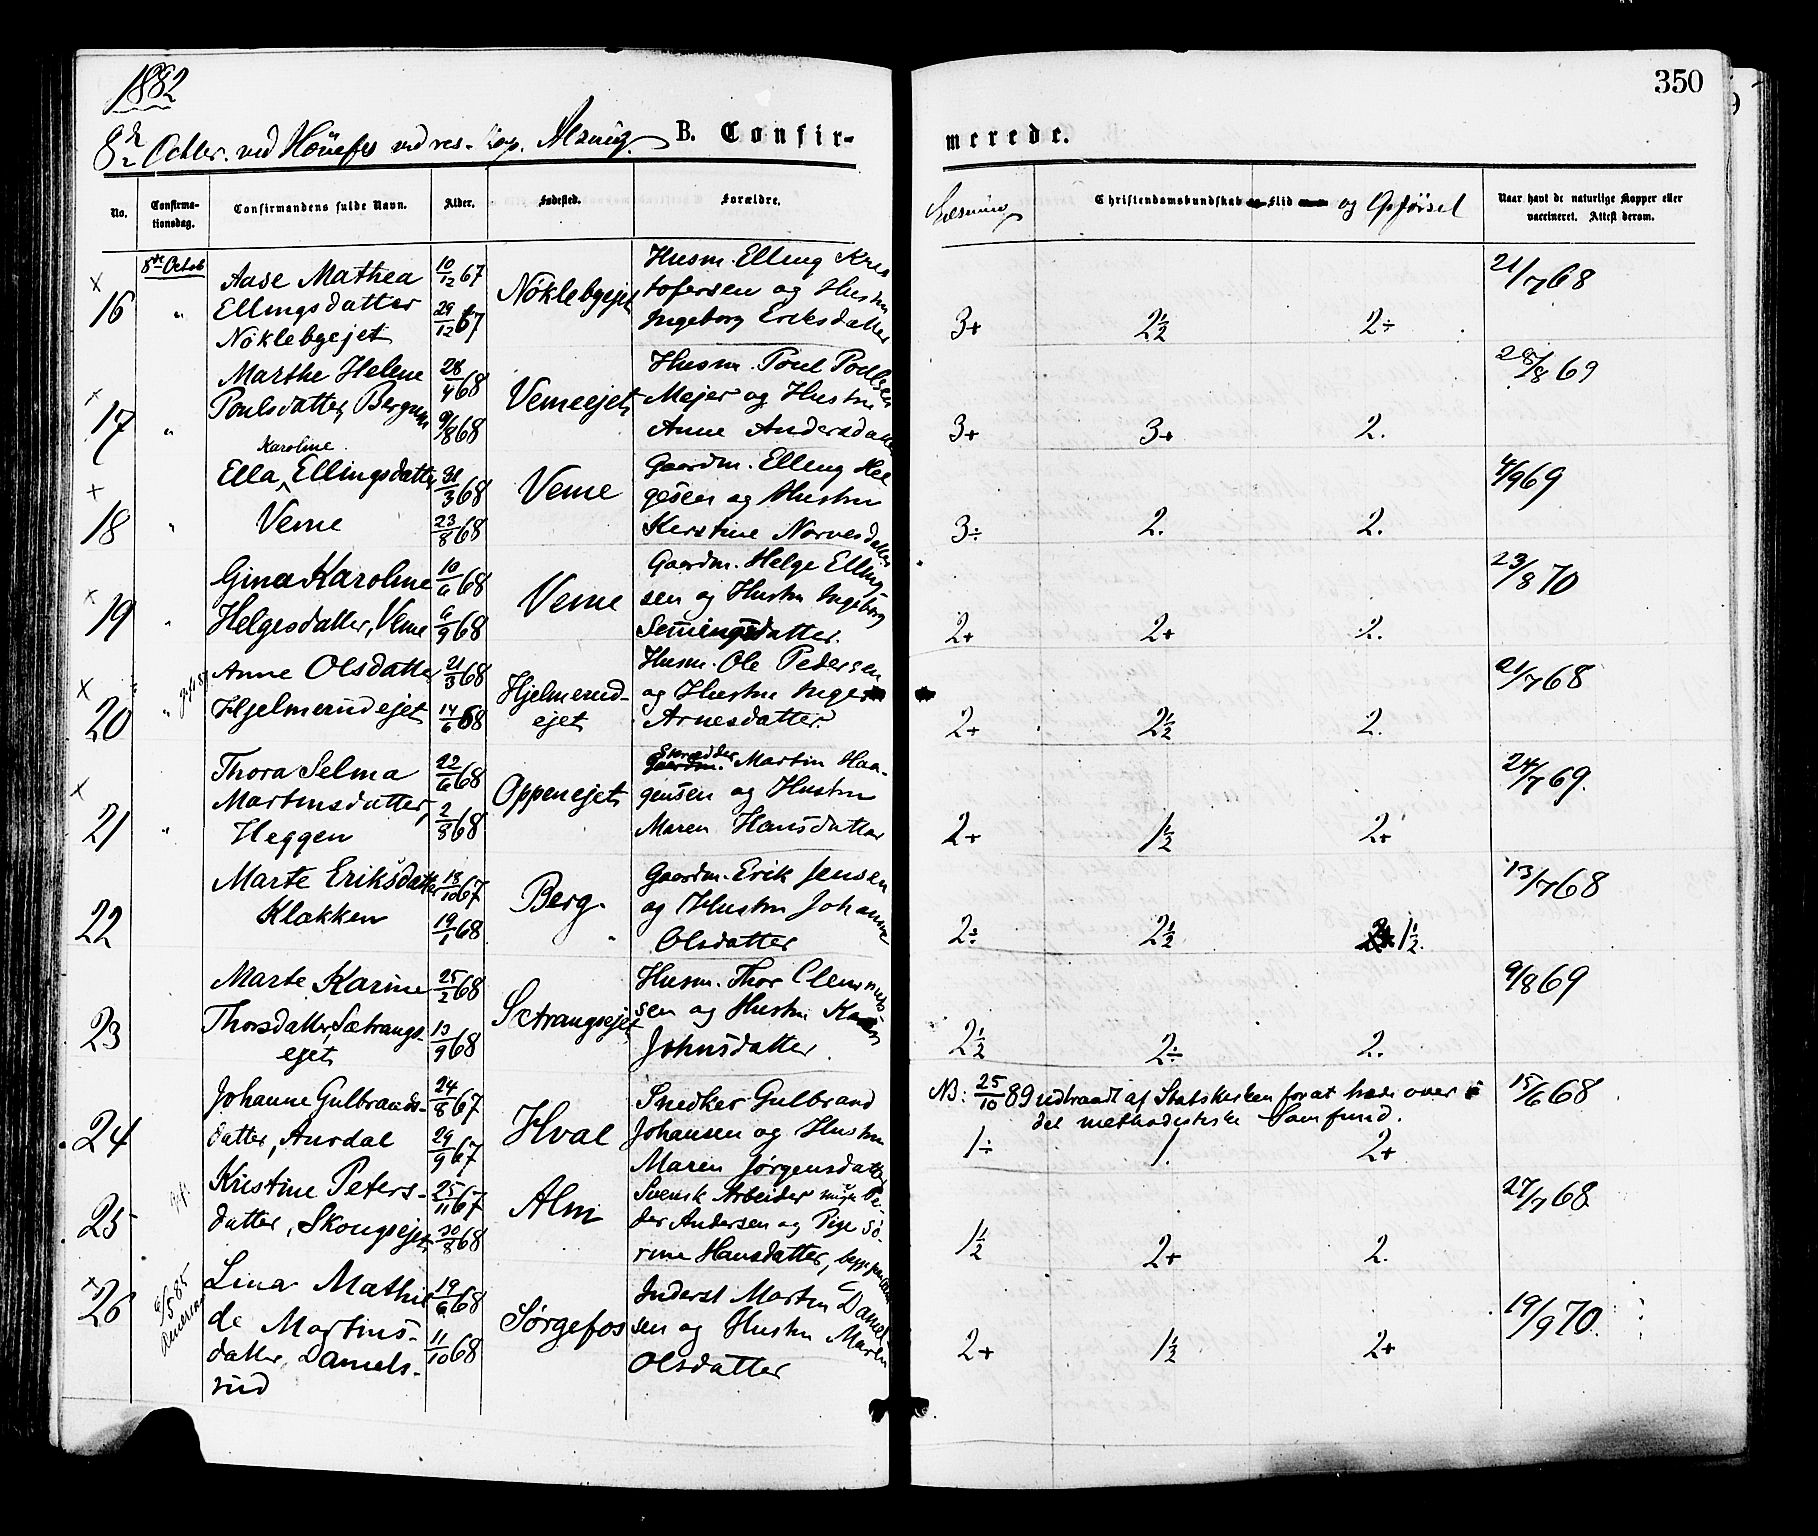 1882
350
8de Octbr. ved Hönefos ved res. Cap.
B. Confir-
merede.
No.
Confirma-
tionsdag.
Confirmandens fulde Navn.
Alder.
Fødested.
Forældre.
Læsning
Christendomskundskab
Flid
og Opförsel
Naar havt de naturlige Kopper eller
vaccineret. Attest derom.
x
16
8de Octob
"
Aase Mathea
Ellingsdatter
Nöklebyejet
10/12 67
29/12 67
Nöklebyejet
Husm. Elling Kris
tofersen og Hustru
Ingeborg Eriksdatter
3+
2½
2÷
21/7 68
x
17
"
Marthe Helene
Poulsdatter, Bergum
28/4 68
9/8 68
Vemeejet
Husm. Poul Poulsen
Mejer og Hustru
Anne Andersdatter
3+
3+
2.
28/8 69
x
18
"
Karoline
Ella, Ellingsdatter
Veme
21/3 68
23/8 68
Veme
Gaardm. Elling Hel
gesen og Hustru
Kerstine Narvesdatter
3÷
2.
2.
4/9 69
x
19
"
Gina Karoline
Helgesdatter, Veme
10/6 68
6/9 68
Veme
Gaardm. Helge Elling-
sen og Hustru Ingeborg
Semingsdatter.
2+
2+
2.
23/8 70
x
20
"
Anne Olsdatter
Hjelmerudejet
21/3 68
14/6 68
Hjelmerud-
ejet
Husm. Ole Pedersen
og Hustru Inge
Arnesdatter
2+
2½
2.
21/7 68
x
21
"
Thora Selma
Martinsdatter,
Heggen
22/6 68
2/8 68
Oppenejet
Skrædder Martin Haa-
gensen og Hustru
Maren Hansdatter
2+
1½
2+
24/7 69.
22
Marte Eriksdatter
Klækken
18/10 67
19/1 68
Berg.
Gaardm. Erik Jensen
og Hustru Johanne
Olsdatter
2÷
2½
1½.
13/7 68
23
Marte Karine
Thorsdatter, Sætrangs-
ejet
25/2 68
13/9 68
Sætrangsejet
Husm. Thor Clemmet
sen og Hustru
Johnsdatter.
2½
2÷
2.
9/8 69
24
Johanne Gulbrands-
datter, Aurdal
24/8 67
29/9 67
Hval
Snedker Gulbrand
Johansen og Hustru
Maren Jørgensdatter
NB: 25/10 89 udtraadt af Statskirken for at træde over i
det methodistiske Samfund.
1÷
1.
2+
15/6 68
25
gift
Kristine Peters-
datter, Skougsejet
25/11 67
30/8 68
Alm
Svensk Arbeider ungk. Pe-
der Andersen og Pige Sö-
rine Hansdatter,
1½
2+
2.
27/7 68
x
26
6/5 85
Lina Mathil
de Martins-
datter, Daniels-
rud
19/6 68
11/10 68
Sørgefos
Inderst Martin Daniel
sen og Hustru Maren
Olsdatter
2+
1½
2+
19/9 70.